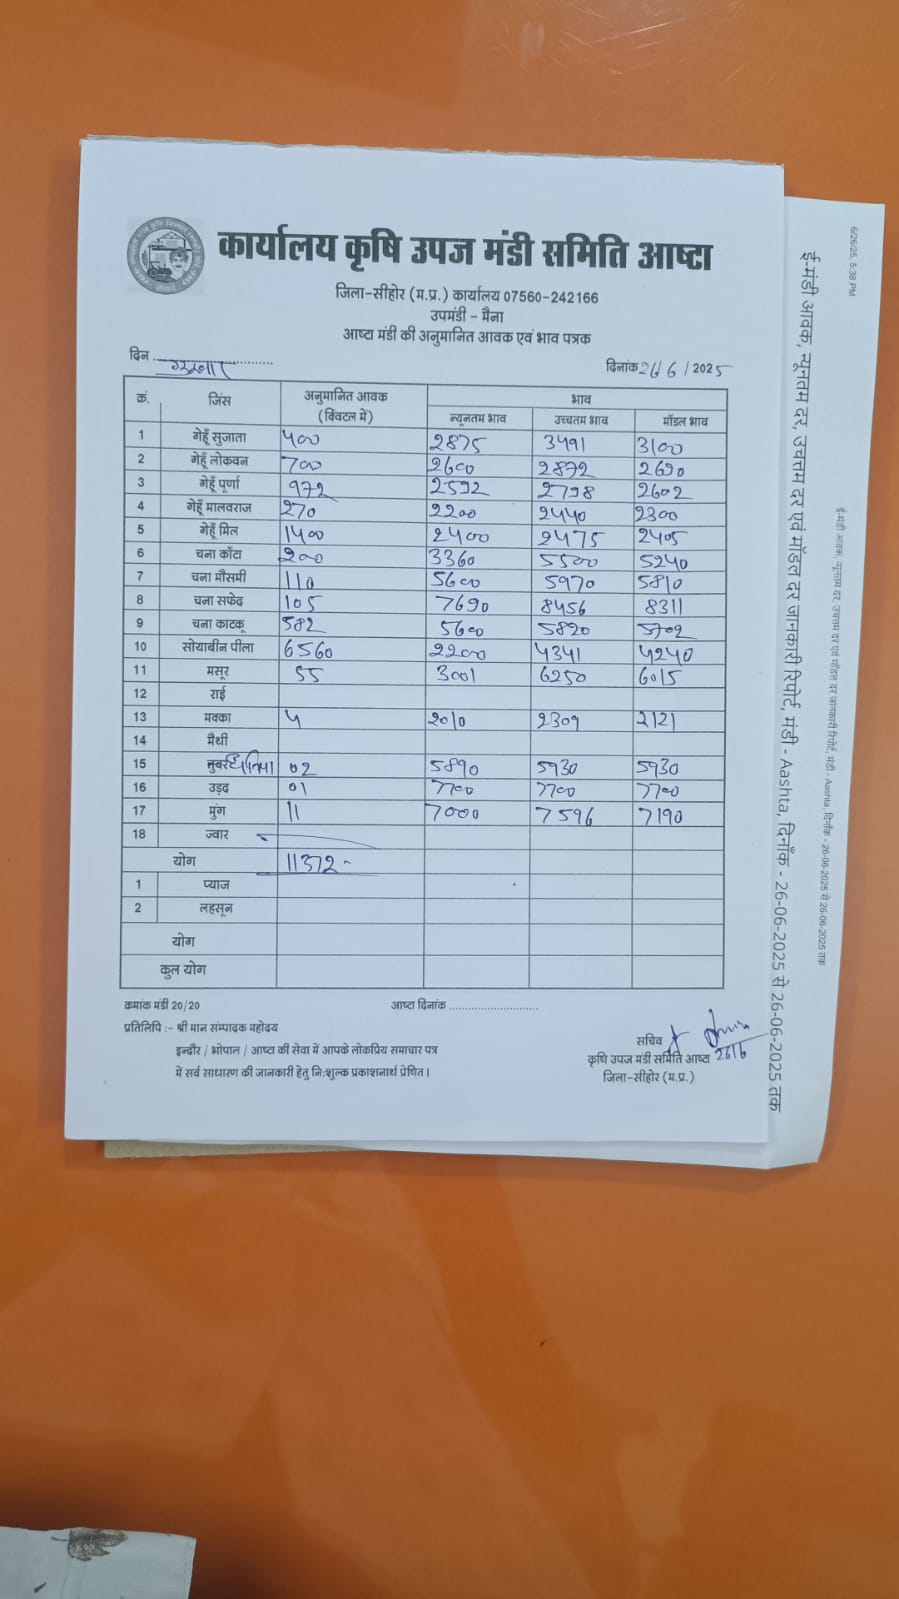 कार्यालय कृषि उपज मंडी समिति आष्टा
जिला-सीहोर (म.प्र.) कार्यालय 07560-242166
उपमंडी - मैना
आष्टा मंडी की अनुमानित आवक एवं भाव पत्रक
दिन गुरुवार दिनांक 26/6/2025
क्रं. जिंस अनुमानित आवक (क्विंटल में) भाव
न्यूनतम भाव उच्चतम भाव मॉडल भाव
1 गेहूँ सुजाता ५00 2875 3491 3100
2 गेहूँ लोकवन 700 2600 2872 2690
3 गेहूँ पूर्णा 972 2592 2798 2602
4 गेहूँ मालवराज 270 2200 2440 2300
5 गेहूँ मिल 1400 2400 2475 2405
6 चना काँटा 200 3360 5500 5240
7 चना मौसमी 110 5600 5970 5810
8 चना सफेद 105 7690 8456 8311
9 चना काटकू 582 5600 5820 5702
10 सोयाबीन पीला 6560 2200 4341 4240
11 मसूर 55 3001 6250 6015
12 राई
13 मक्का 5 2010 2309 2121
14 मैथी
15 धनिया 02 5890 5930 5930
16 उड़द 01 7700 7700 7700
17 मुंग 11 7000 7596 7190
18 ज्वार
योग 11372-
1 प्याज
2 लहसून
योग
कुल योग
क्रमांक मंडी 20/20 आष्टा दिनांक ............................
प्रतिलिपि :- श्री मान सम्पादक महोदय
इन्दौर / भोपाल / आष्टा की सेवा में आपके लोकप्रिय समाचार पत्र
में सर्व साधारण की जानकारी हेतु नि:शुल्क प्रकाशनार्थ प्रेषित।
सचिव
कृषि उपज मंडी समिति आष्टा 26/6
जिला-सीहोर (म.प्र.)
6/26/25, 5:38 PM
ई-मंडी आवक, न्यूनतम दर, उच्चत्तम दर एवं मॉडल दर जानकारी रिपोर्ट, मंडी - Aashta, दिनाँक - 26-06-2025 से 26-06-2025 तक
ई-मंडी आवक, न्यूनतम दर, उच्चत्तम दर एवं मॉडल दर जानकारी रिपोर्ट, मंडी - Aashta, दिनाँक - 26-06-2025 से 26-06-2025 तक